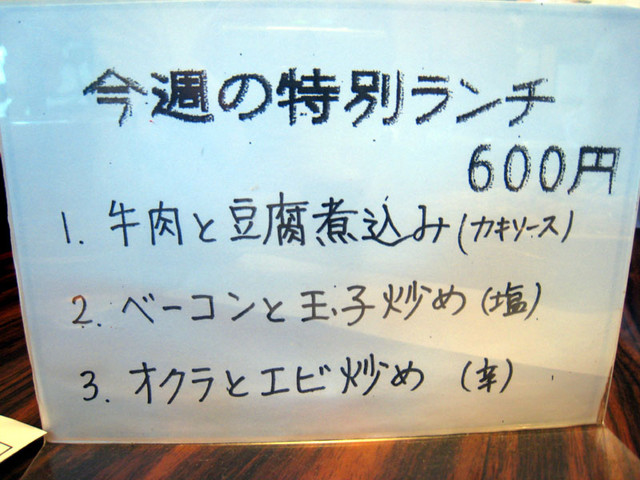 今週の特別ランチ
600円
1. 牛肉と豆腐煮込み(カキソース)
2. ベーコンと玉子炒め(塩)
3. オクラとエビ炒め (辛)